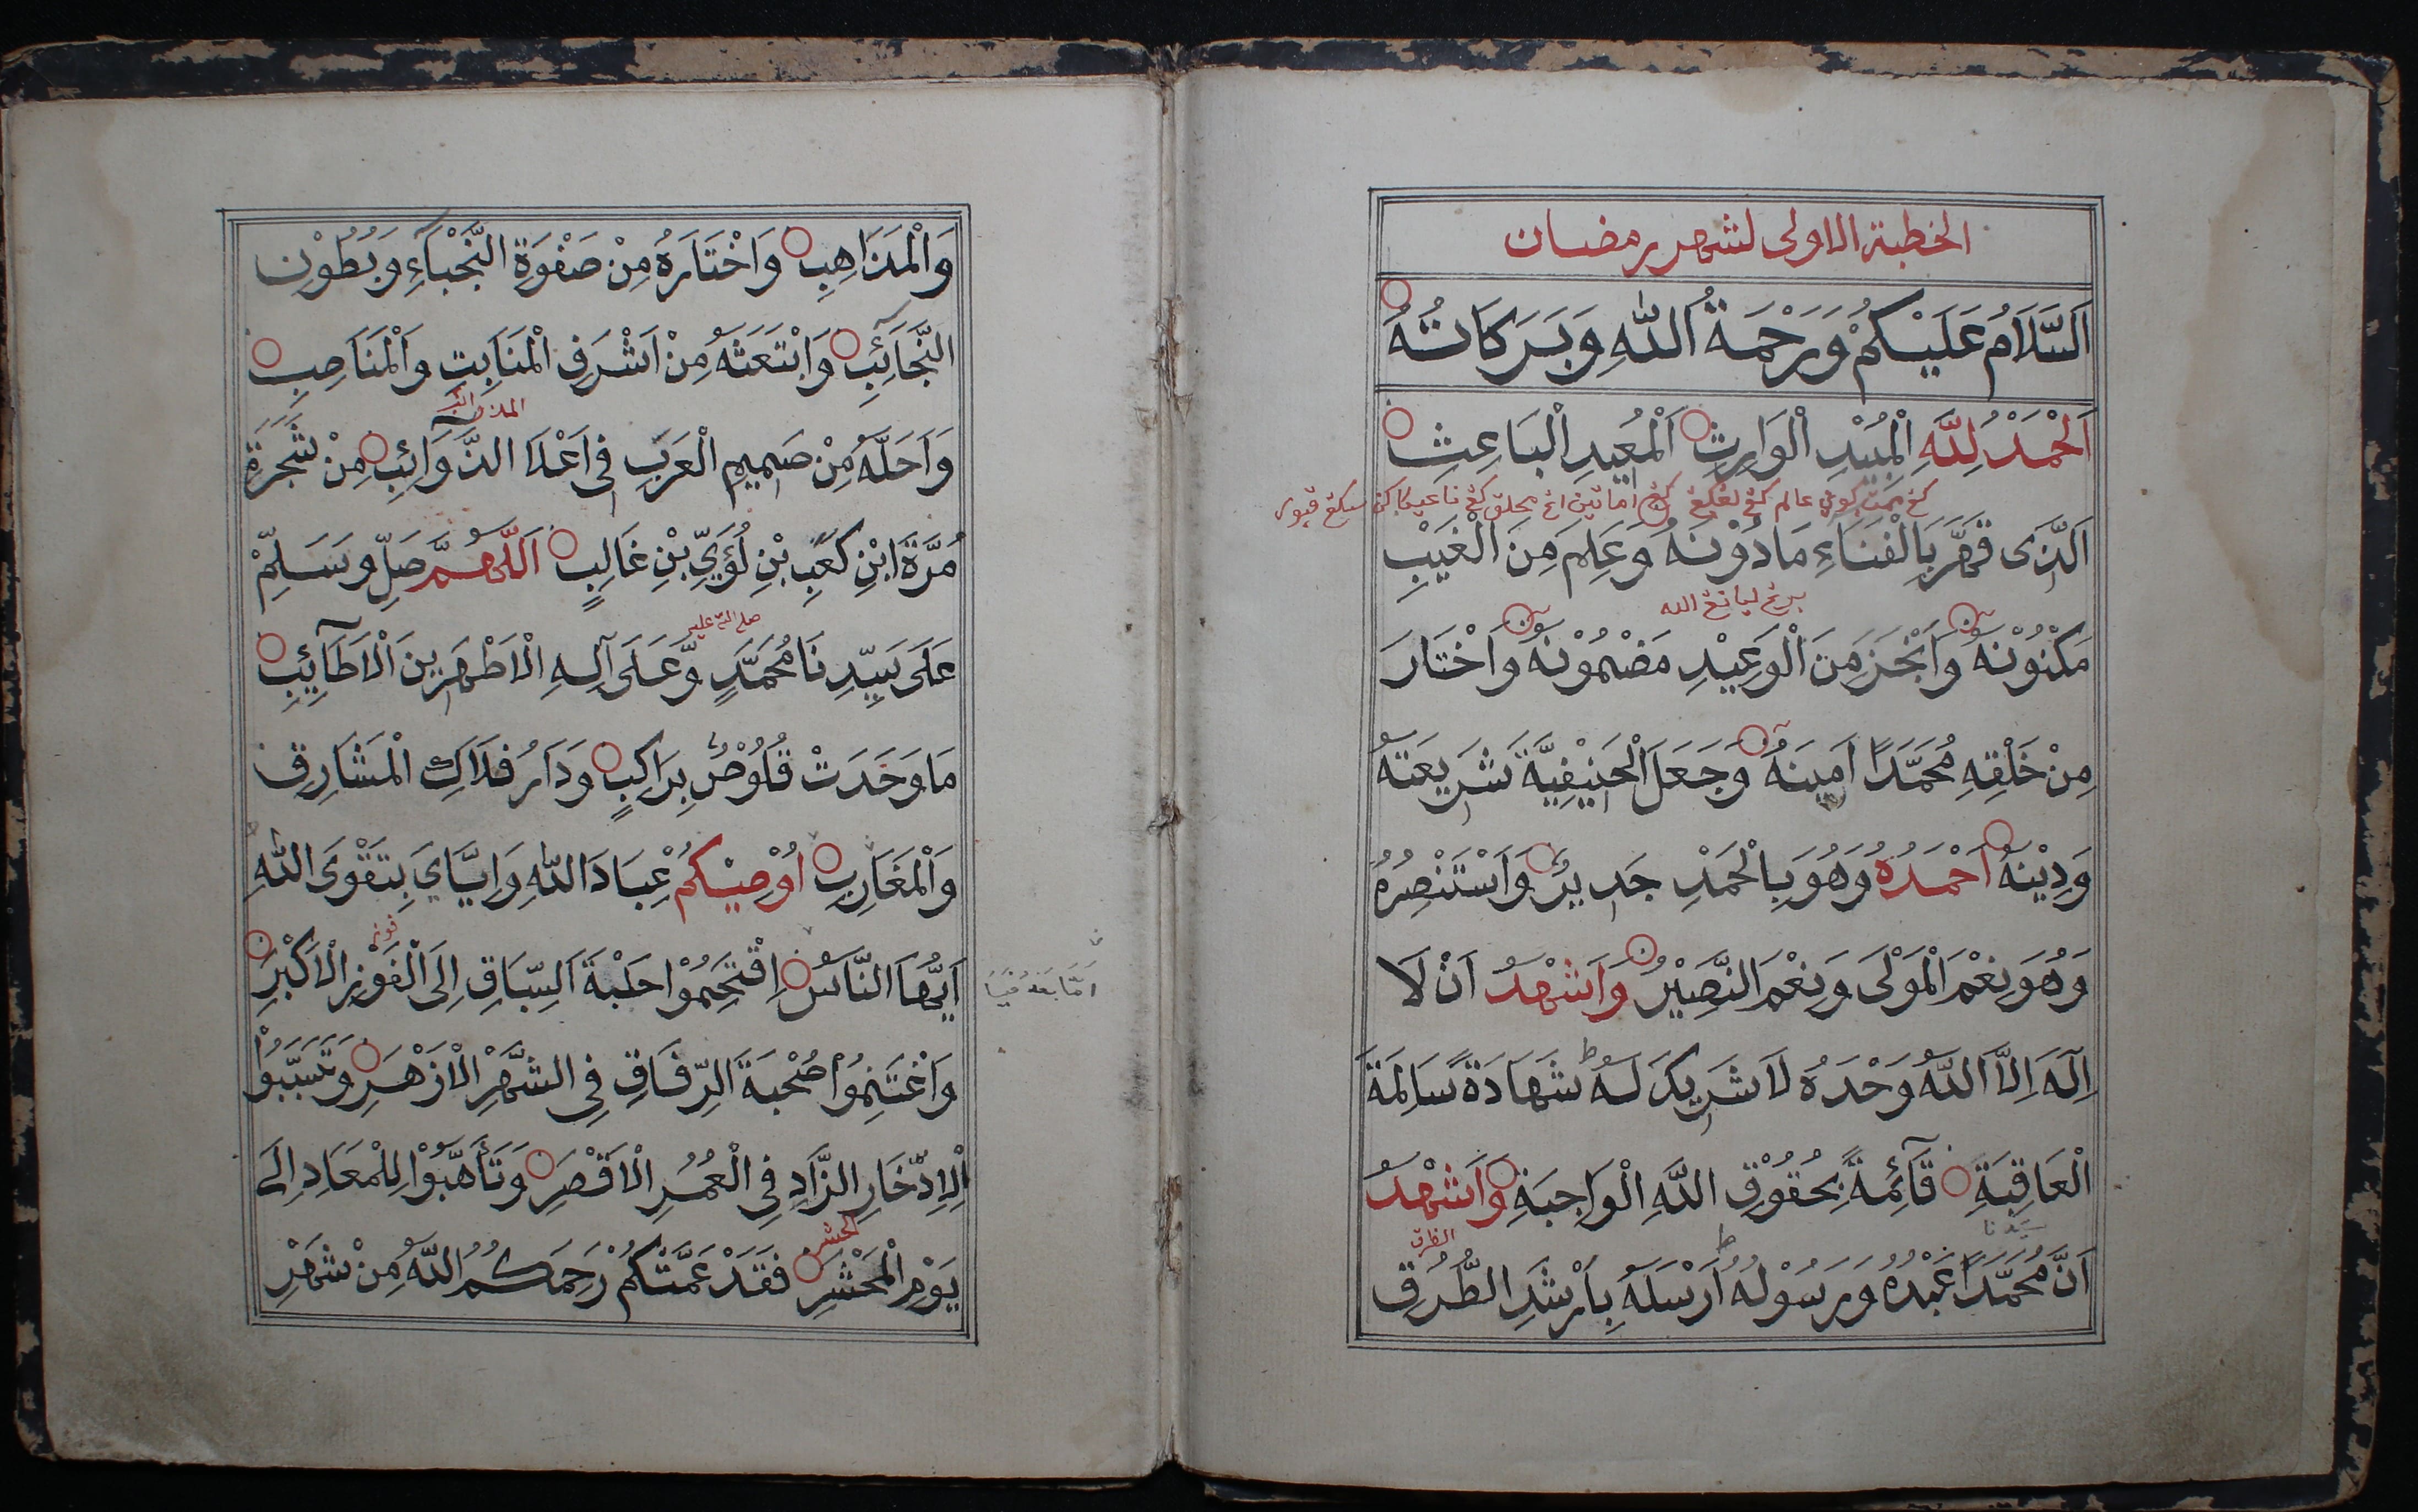 الخطبة الاولى لشهر رمضان
اَلسَّلَامُ عَلَيْكُمْ وَرَحْمَةُ اللّٰهِ وَبَرَكَاتُهُ
اَلْحَمْدُ لِلّٰهِ الْمُبْدِ الْوَارِثِ اَلْمُعِيدِ الْبَاعِثِ
اَلَّذِى قَهَّرَ بِالْفَنَاءِ مَا دُوْنَهُ وَعَلِمَ مِنَ الْغَيْبِ
مَكْنُوْنَهُ وَاَنْجَزَ مِنَ الْوَعِيْدِ مَضْمُوْنَهُ وَاخْتَارَ
مِنْ خَلْقِهِ مُحَمَّدًا اَمِينَهُ وَجَعَلَ الْحَنِيْفِيَّةَ شَرِيعَتَهُ
وَدِيْنَهُ اَحْمَدُهُ وَهُوَ بِالْحَمْدِ جَدِيرٌ وَاَسْتَنْصِرُهُ
وَهُوَ نِعْمَ الْمَوْلَى وَنِعْمَ النَّصِيْرُ وَاَشْهَدُ اَنْ لَا
اِلٰهَ اِلَّا اللّٰهُ وَحْدَهُ لَا شَرِيكَ لَهُ شَهَادَةً سَالِمَةَ
الْعَاقِبَةِ قَآئِمَةً بِحُقُوْقِ اللّٰهِ الْوَاجِبَةِ وَاَشْهَدُ
سيدنا
الطرق
اَنَّ مُحَمَّدًا عَبْدُهُ وَرَسُوْلُهُ اَرْسَلَهُ بِاَرْشَدِ الطُّرُقِ
وَالْمَذَاهِبِ وَاخْتَارَهُ مِنْ صَفْوَةِ النُّجْبَآءِ وَبُطُوْنِ
النَّجَآئِبِ وَابْتَعَثَهُ مِنْ اَشْرَفِ الْمَنَابِتِ وَالْمَنَاصِبِ
وَاَحَلَّهُ مِنْ صَمِيمِ الْعَرَبِ فِى اَعْلَا الذَّوَآئِبِ مِنْ شَجَرَةِ
مُرَّةَ ابْنِ كَعْبِ بْنِ لُؤَيِّ بْنِ غَالِبٍ اَللّٰهُمَّ صَلِّ وَسَلِّمْ
صلى الله عليه
عَلَى سَيِّدِنَا مُحَمَّدٍ وَّعَلَى آلِهِ الْاَطْهَرِينَ الْاَطَآئِبِ
مَا وَخَدَتْ قَلُوْصٌ بِرَاكِبٍ وَدَارُ فَلَاكِ الْمَشَارِقِ
وَالْمَغَارِبِ اُوْصِيْكُمْ عِبَادَ اللّٰهِ وَاِيَّايَ بِتَقْوَى اللّٰهِ
فوز
اَيُّهَا النَّاسُ اِقْتَحِمُوْا حَلْبَةَ السِّبَاقِ اِلَى الْفَوْزِ الْاَكْبَرِ
وَاغْتَنِمُوْا صُحْبَةَ الرِّفَاقِ فِى الشَّهْرِ الْاَزْهَرِ وَتَسَبَّبُوْا
اِلِادِّخَارِ الزَّادِ فِي الْعُمُرِ الْاَقْصَرِ وَتَأَهَّبُوْا لِلْمَعَادِ اِلَى
الحشر
يَوْمِ الْمَحْشَرِ فَقَدْ عَمَّتْكُمْ رَحِمَكُمُ اللّٰهُ مِنْ شَهْرِ